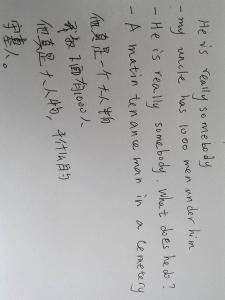 He is really somebody
- my uncle has 1000 men under him
- He is really somebody. What does he do?
- A maintenance man in a cemetery
他真是一个大人物
我叔下面有1000人
他真是大人物，干什么的
守墓人。